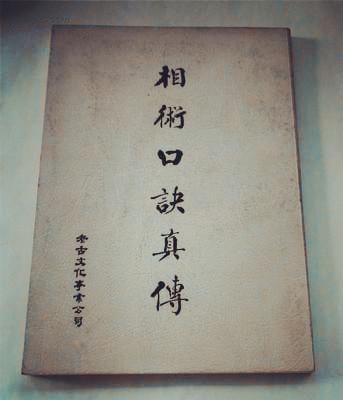 相術口訣真傳
老古文化事業公司